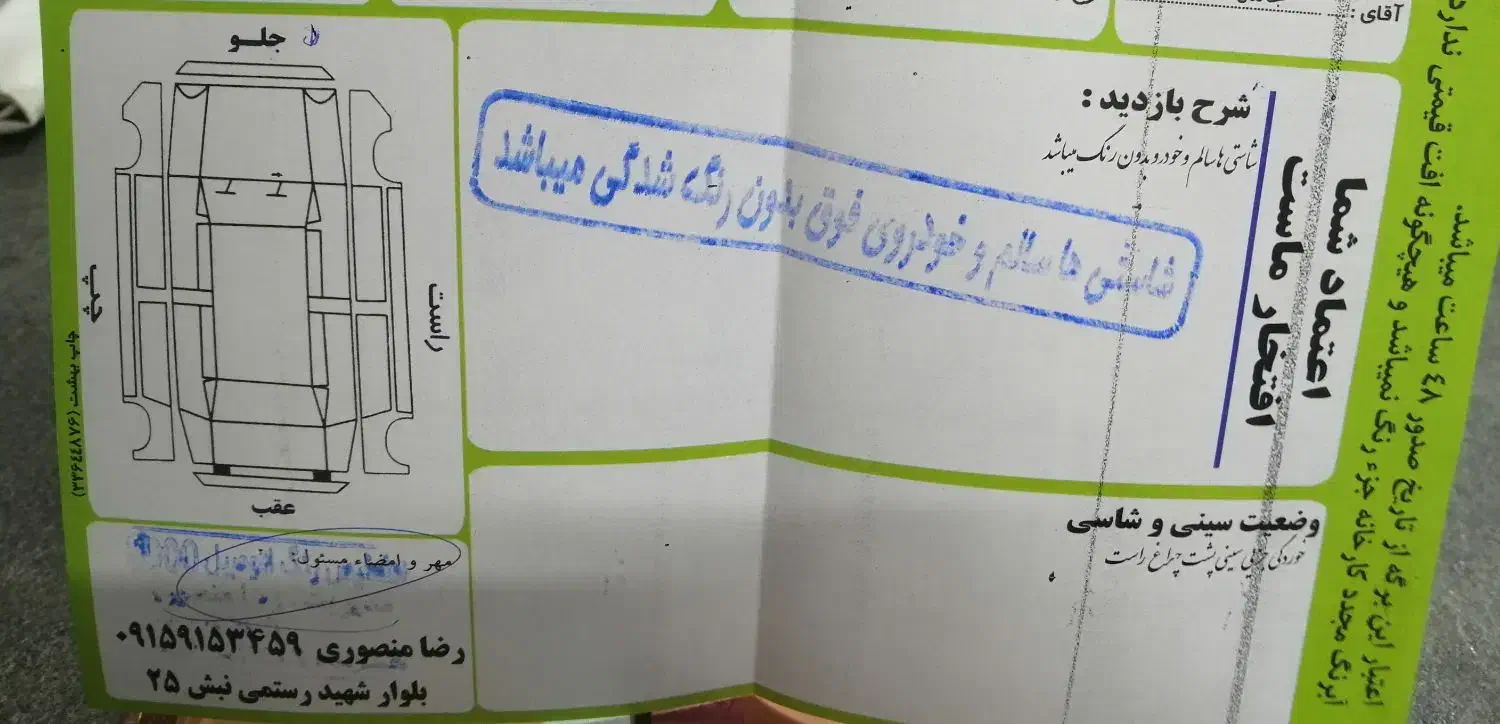 آقای :
شرح بازدید :
شاستی ها سالم و خودرو بدون رنگ میباشد
شاستی ها سالم و خودروی فوق بدون رنگ شدگی میباشد
اعتماد شما
افتخار ماست
اعتبار این برگه از تاریخ صدور ٤٨ ساعت میباشد.
و هیچگونه افت قیمتی ندارد
آبرنگ مجدد کارخانه جزء رنگ نمیباشد
جلــو
چپ
راست
عقب
چاپ بهشت (٣٣٦٤٤٨٧٦)
وضعیت سینی و شاسی
خوردگی جزئی سینی پشت چراغ راست
مهر و امضاء مسئول:
رضا منصوری ۰۹۱۵۹۱۵۳۴۵۹
بلوار شهید رستمی نبش ۲۵